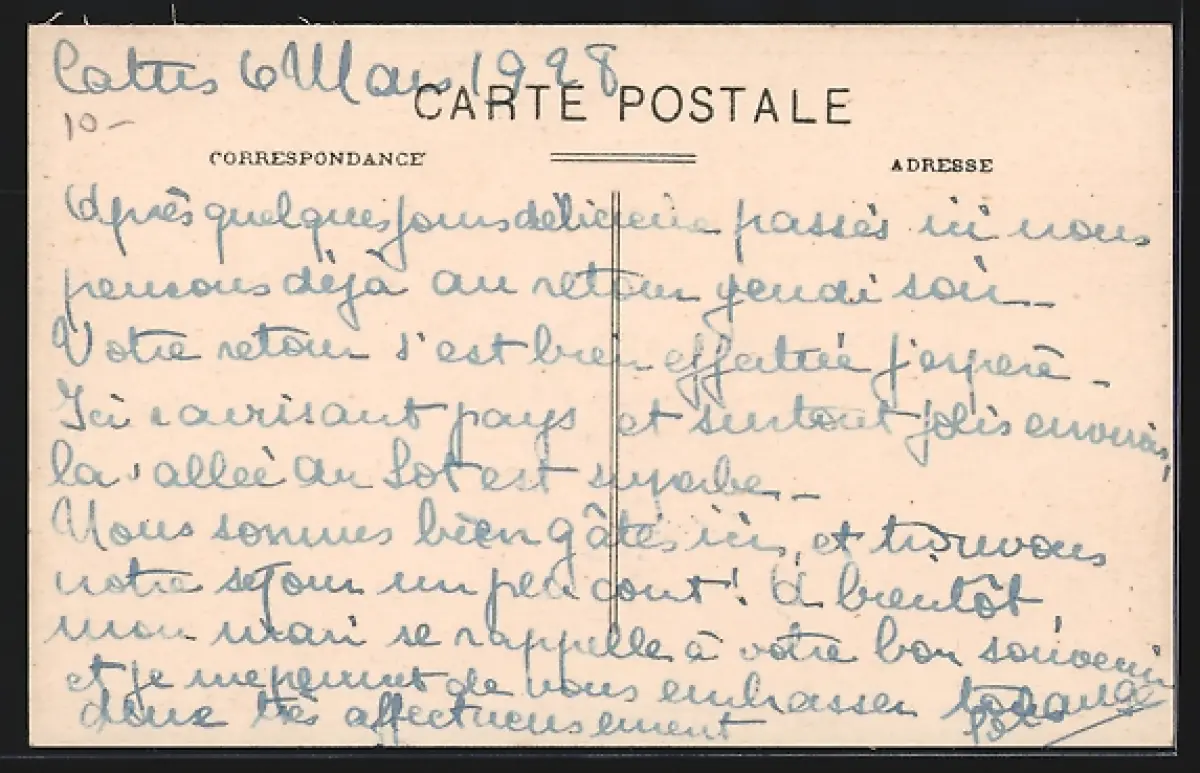 6 Mars 1928
CARTE POSTALE
10-
CORRESPONDANCE
ADRESSE
Après quelques jours délicieux passés ici nous
pensons déjà au retour jeudi soir -
Votre retour s'est bien effectué j'espère -
Ici ravissant pays et surtout jolis environs,
la vallée du Lot est superbe -
Nous sommes bien gâtés ici, et trouvons
notre séjour un peu court! A bientôt,
mon mari se rappelle à votre bon souvenir
et je me permet de vous embrasser
deux très affectueusement